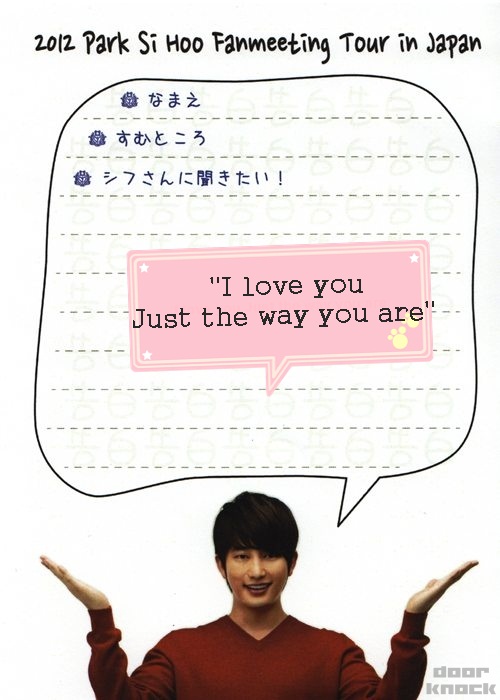 2012 Park Si Hoo Fanmeeting Tour in Japan
なまえ
すむところ
シフさんに聞きたい！
"I love you
Just the way you are"
door
knock